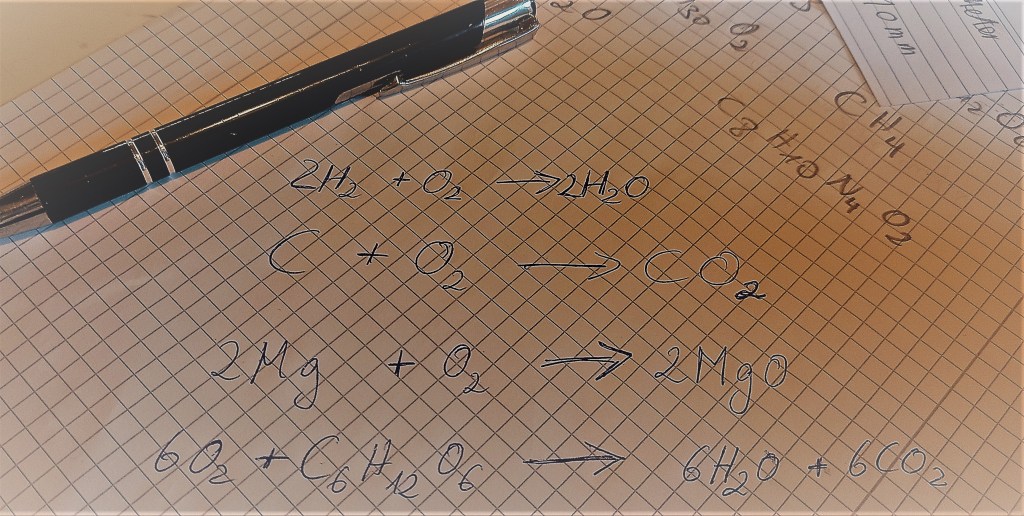 2H₂ + O₂ → 2H₂O
C + O₂ → CO₂
2Mg + O₂ → 2MgO
6O₂ + C₆H₁₂O₆ → 6H₂O + 6CO₂
2O
O₂
CH₄
C₈H₁₀N₄O₂
10mm